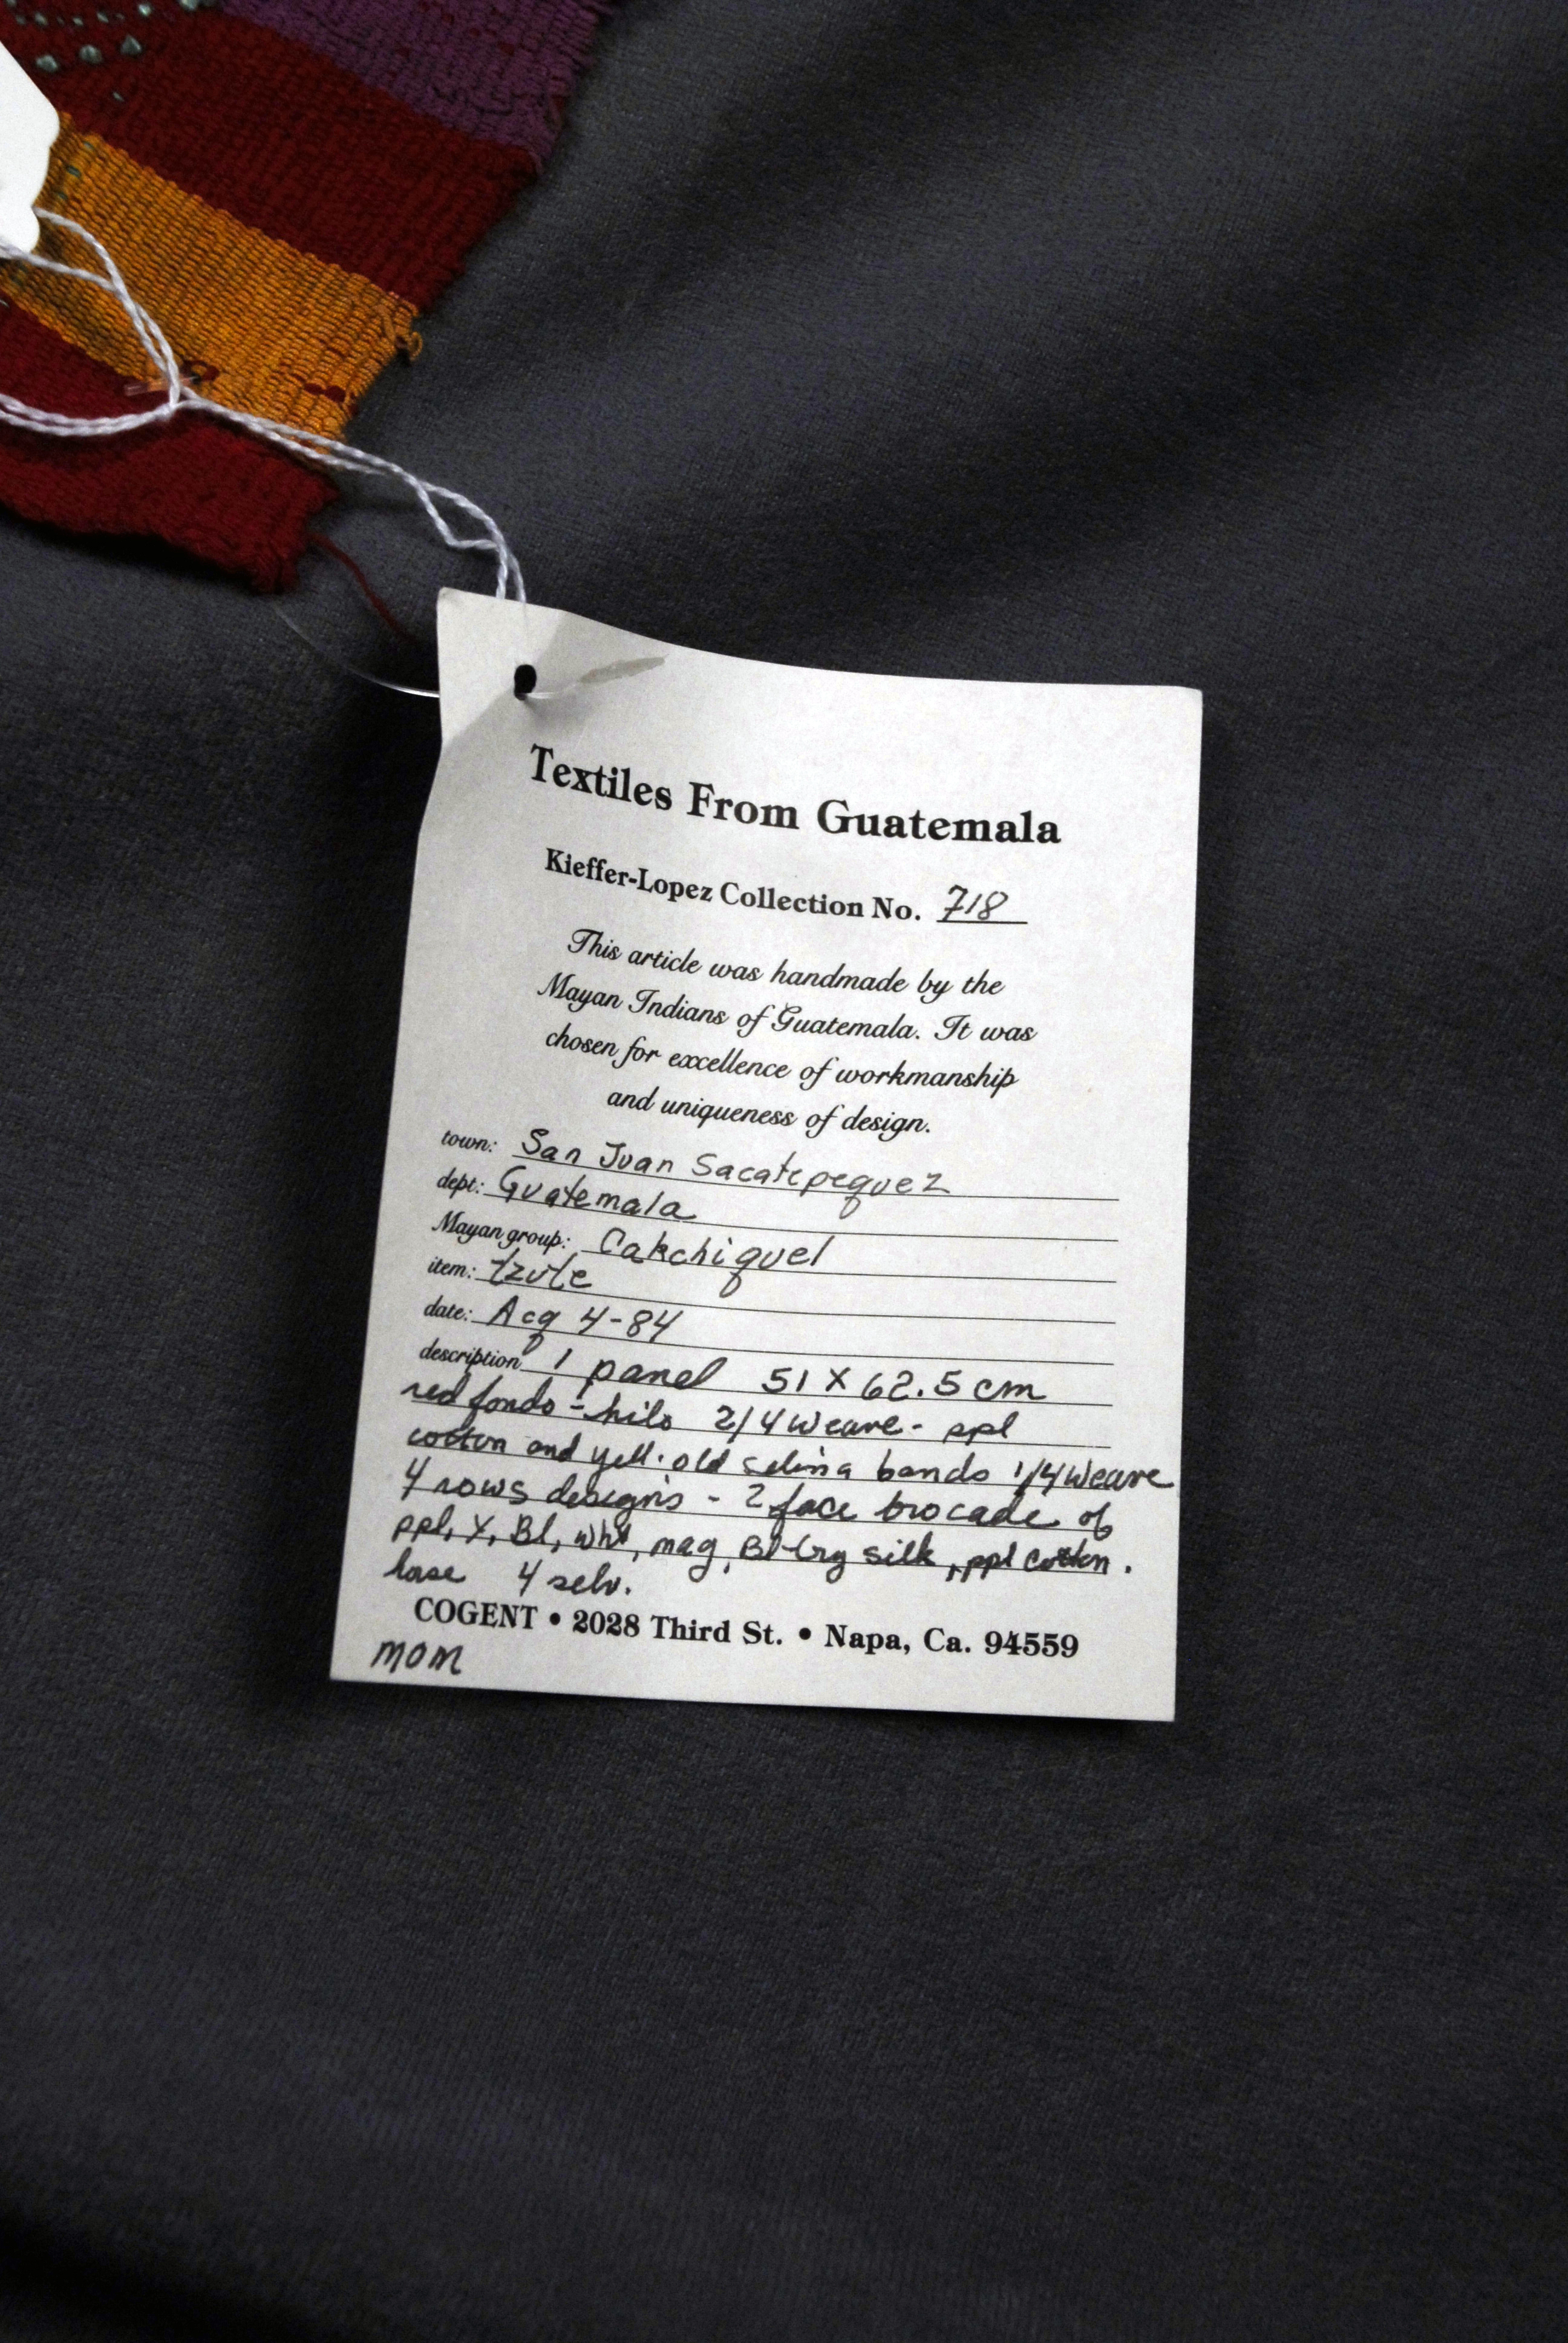 Textiles From Guatemala
Kieffer-Lopez Collection No. 718
This article was handmade by the
Mayan Indians of Guatemala. It was
chosen for excellence of workmanship
and uniqueness of design.
town: San Juan Sacatepequez
dept: Guatemala
Mayan group: Cakchiquel
item: tzute
date: Acq 4-84
description 1 panel 51 X 62.5 cm
red fondo - hilo 2/4 weave - ppl
cotton and yell. old selina bands 1/4 weave
4 rows designs - 2 face brocade of
ppl, Y, Bl, wht, mag, Bl-Gry silk, ppl cotton.
4 selv.
COGENT • 2028 Third St. • Napa, Ca. 94559
MOM